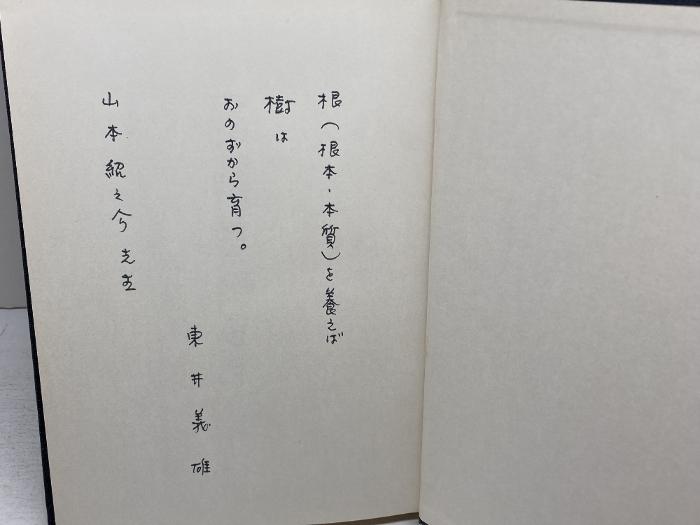 根(根本・本質)を養えば
樹は
おのずから育つ。
東井義雄
山本紹之介先生